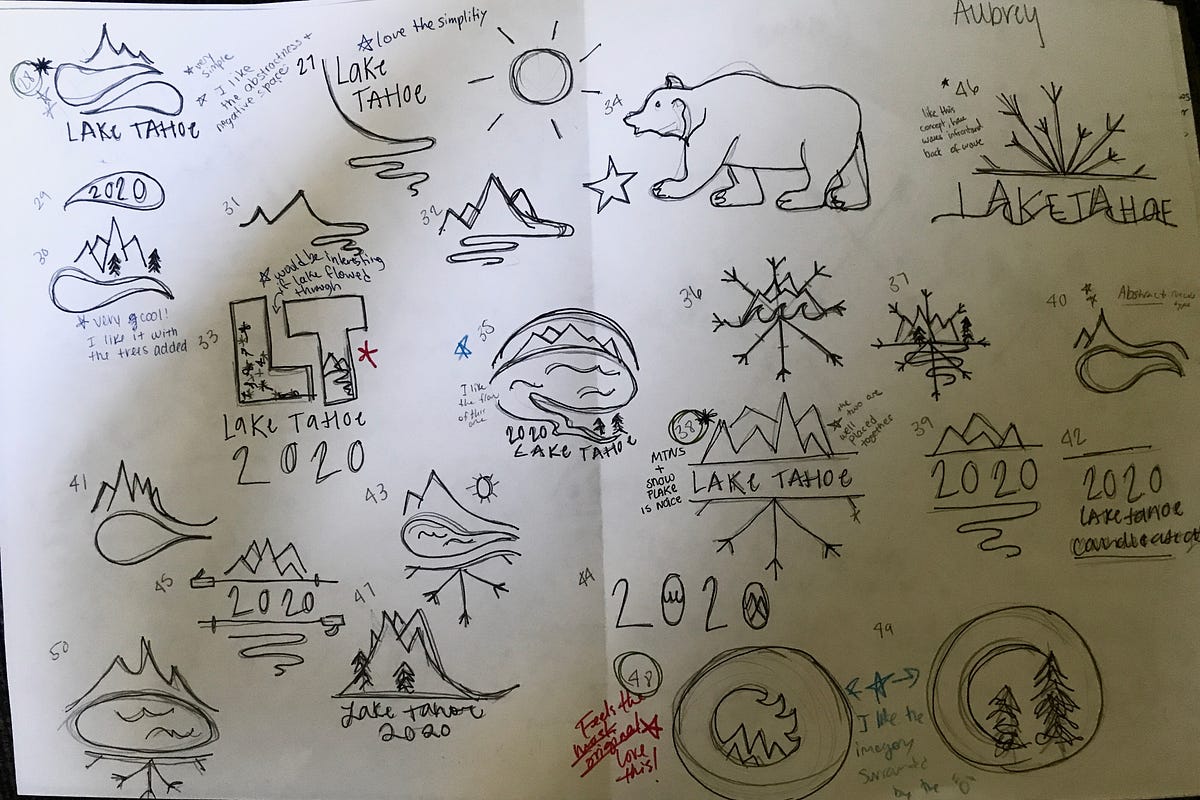 Aubrey
28
very simple
I like
the abstractness +
negative space
LAKE TAHOE
27
love the simplitiy
Lake
TAHOE
34
46
like this
concept, have
waves infront and
back of wave
LAKE TAHOE
29
2020
30
very cool!
I like it with
the trees added
31
32
would be interesting
if lake flowed
through
33
LT
Lake TAHOE
2020
35
I like
the flow
of this
one
2020
LAKE TAHOE
36
37
40
Abstract
38
MTNS
+
SNOW
FLAKE
IS NICE
LAKE TAHOE
the
two are
well
placed
together
39
2020
42
2020
Lake tahoe
41
43
45
2020
47
Lake Tahoe
2020
44
2020
50
48
Feels the
most
original
love
this!
49
I like the
imagery
surrounded
by the